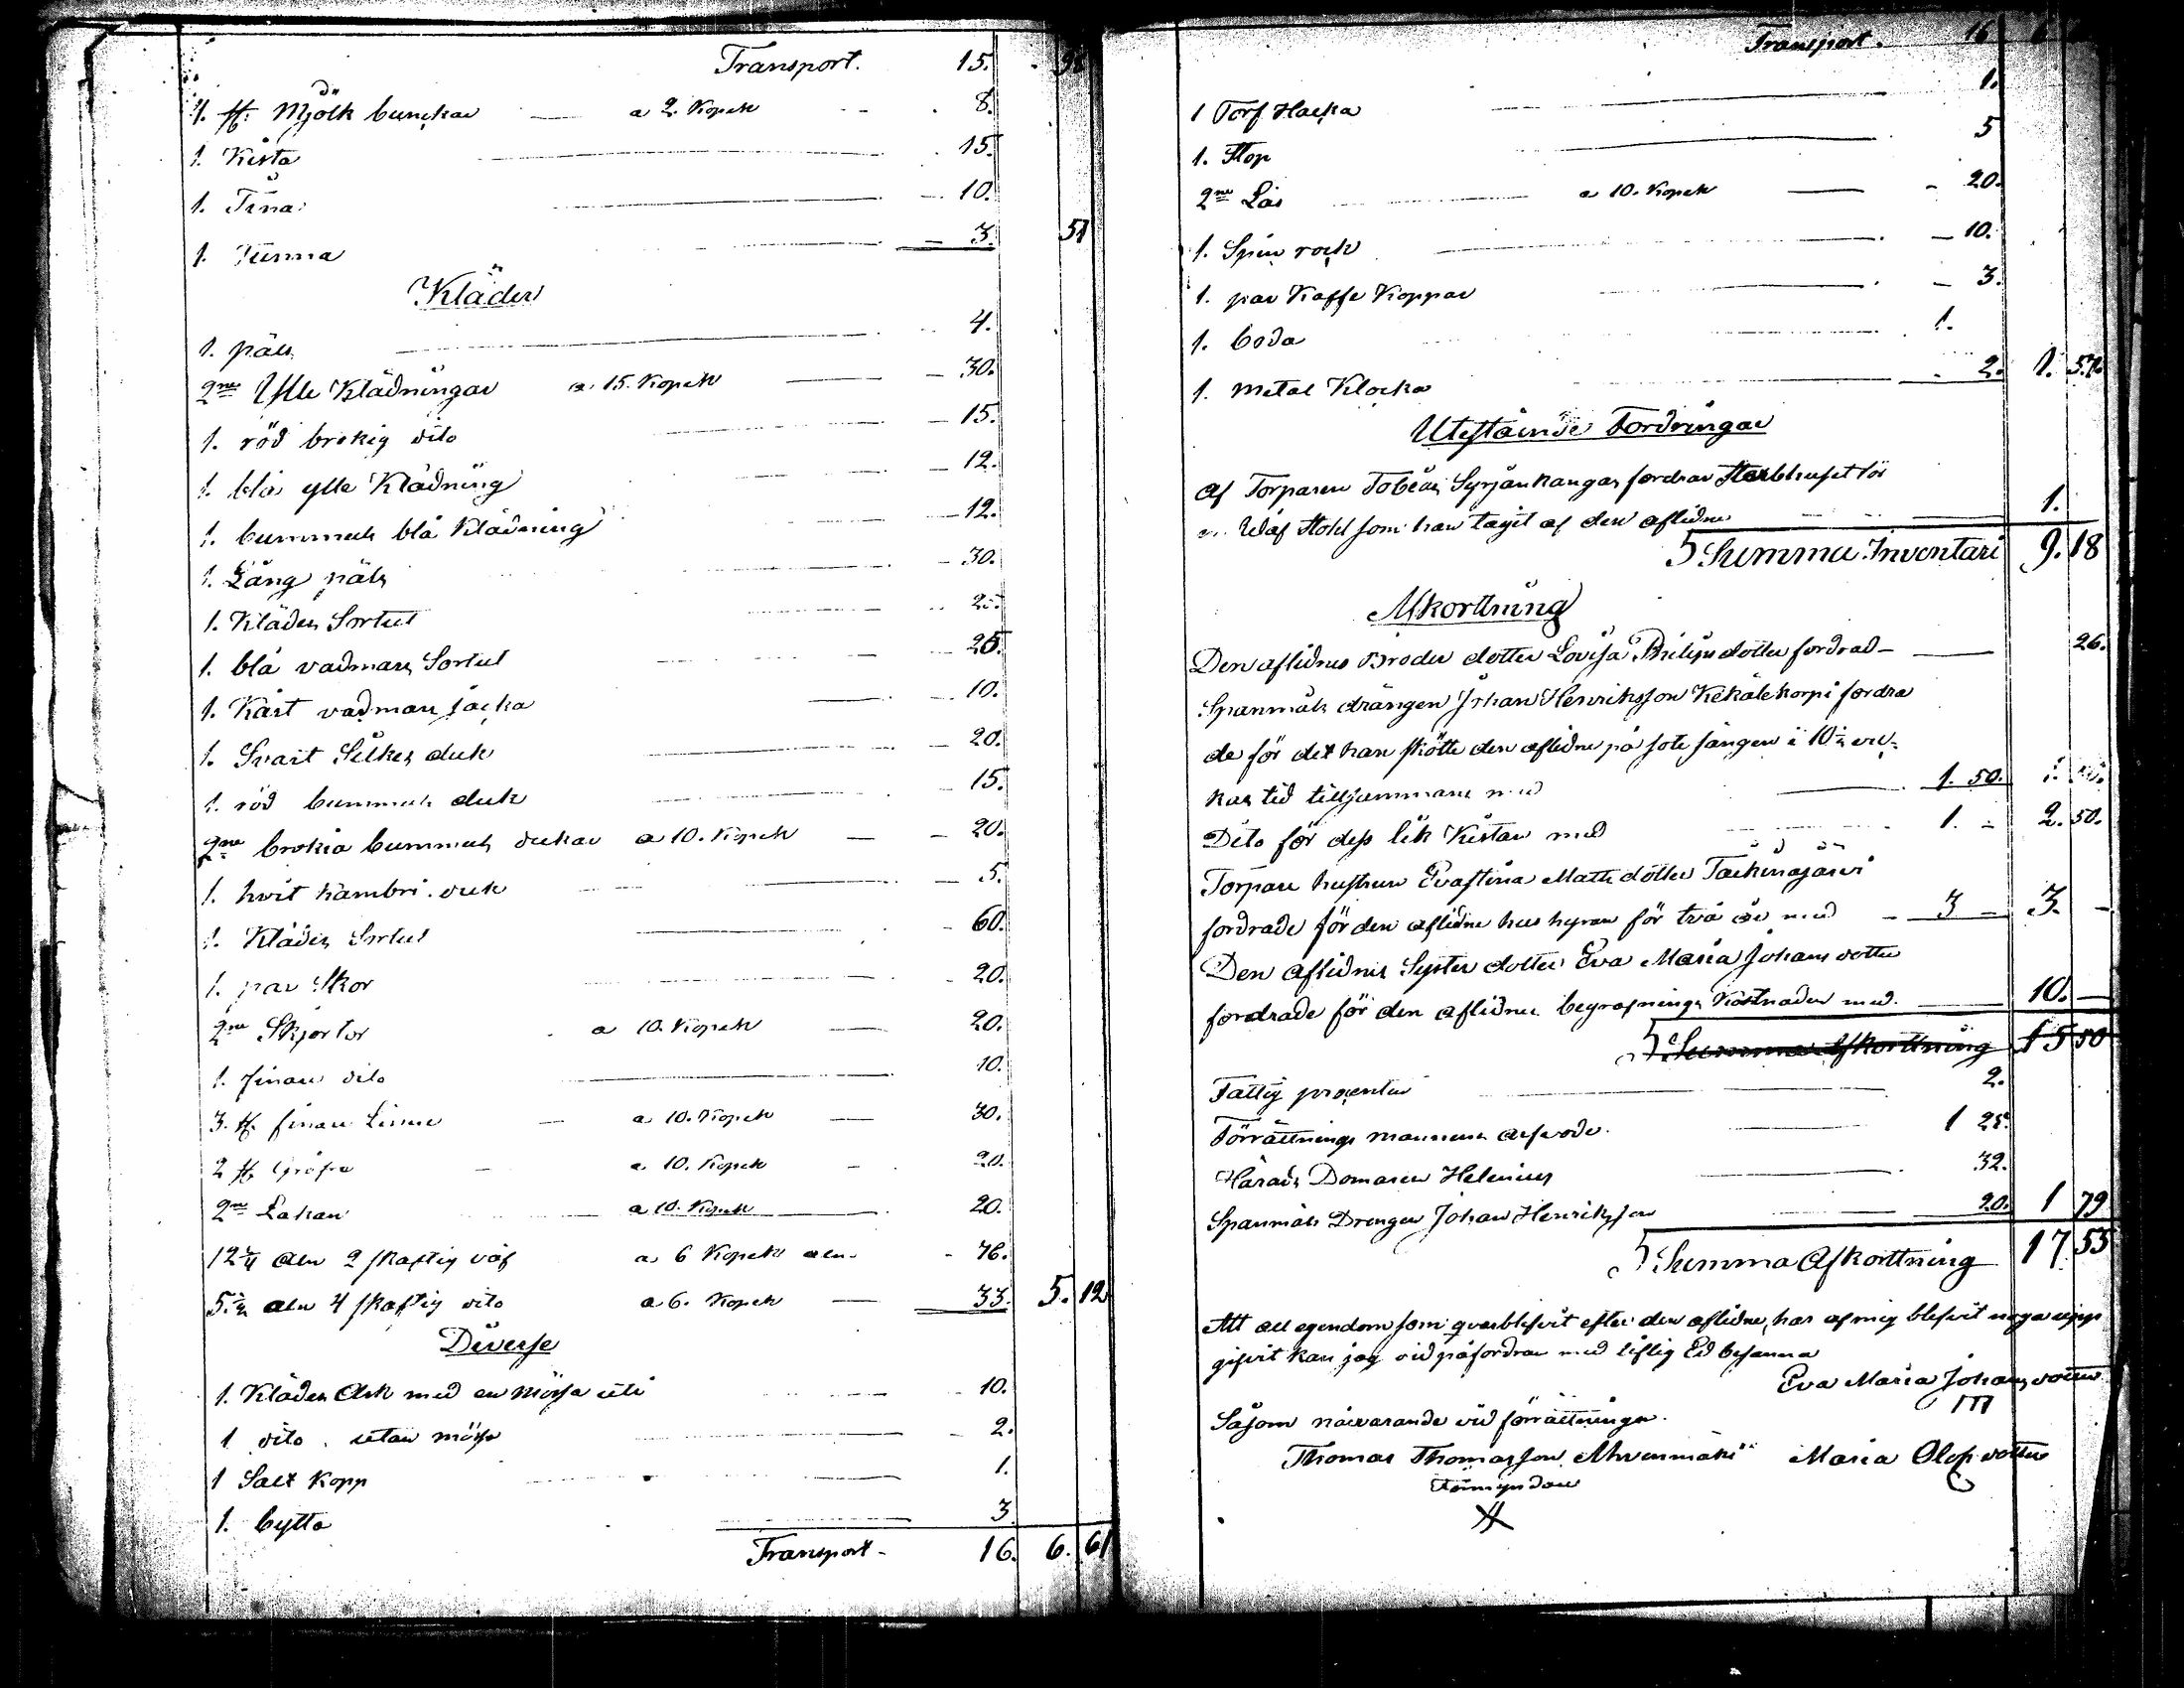 Transport. 15. 98
4. st. Mjölk bunckar a 2. Kopek 8.
1. Kista 15.
1. Tina 10.
1. Tunna 3. 51
Kläder
1. päls 4.
2ne Ylle Klädningar a 15. Kopek 30.
1. röd brokig dito 15.
1. blå ylle Klädning 12.
1. bummuls blå Klädning 12.
1. Lång päls 30.
1. Klädes Sortut 25.
1. blå vadmans Sortut 25.
1. Kart vadmans jacka 10.
1. Svart Silkes duk 20.
1. röd bummuls duk 15.
2ne brokia bummuls dukar a 10. Kopek 20.
1. hvit kambri duk 5.
1. Klädes Sortut 60.
1. par Skor 20.
2ne Skjortor a 10. Kopek 20.
1. finare dito 10.
3. st. finare Linne a 10. Kopek 30.
2 st. Gröfre a 10. Kopek 20.
2ne Lakan a 10. Kopek 20.
12¾ aln 2 skaftig väf a 6 Kopek aln 76.
5.½ aln 4 skaftig dito a 6. Kopek 33. 5. 12
Diverse
1. Klädes Ask med en mössa uti 10.
1 dito utan mössa 2.
1 Salt Kopp 1.
1. bytta 3.
Transport 16. 6. 61
Transport. 16 6
1 Torf Hacka 1.
1. Stop 5
2ne Lås a 10. Kopek 20.
1. Spin rock 10.
1. par Kaffe Koppar 3.
1. boda 1.
1. metal Klocka 2. 1. 57.
Utestående Fordringar
Af Torparen Tobias Syrjänkangas fordrar Sterbhuset för
en Wäf Stohl som han tagit af den aflidne 1.
Summa Inventari 9. 18
Afkorttning
Den aflidnes Broder dotter Lovisa Philipsdotter fordrad 26.
Spanmåls drängen Johan Henriksson Kekälekorpi fordra
de för det han skötte den aflidne på sote sängen i 10½ vec-
kas tid tillsammans med 1. 50.
Dito för dess lik Kistan med 1. 2. 50.
Torpare hustrun Evastina Matts dotter Tackinajärvi
fordrade för den aflidne hus hyran för två år med 3 3.
Den aflidnes Syster dotter Eva Maria Johans dotter
fordrade för den aflidnes begrafnings Kostnader med 10.
Summa Afkorttning 15 50
Fattig procenter 2.
Förrättnings mannens arfvode 1 25
Härads Domaren Helenius 32.
Spanmåls Drengen Johan Henriksson 20. 1 79
Summa Afkorttning 17. 55
Att all egendom som qvarblefvit efter den aflidne, har af mig blefvit noga upp
gifvit kan jag vid påfordran med liflig Ed besanna
Eva Maria Johans dotter
Såsom närvarande vid förrättningen.
Thomas Thomasson Ahvenmäki Maria Olofs dotter
Förmyndare